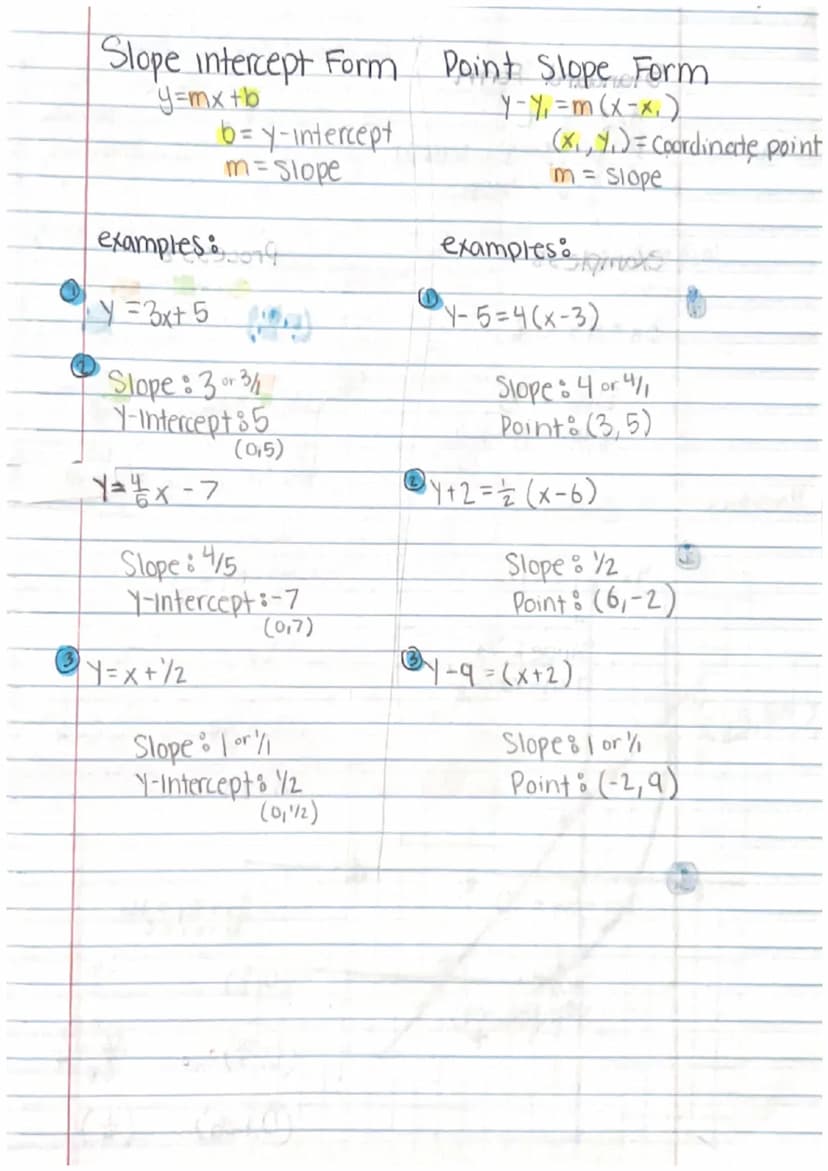 Slope intercept Form
y=mx+b
b= y-intercept
m= slope
examples:
① y=3x+5
② Slope: 3 or 3/1
Y-Intercept: 5
(0,5)
Y=4/5x - 7
Slope: 4/5
Y-Intercept: -7
(0,7)
③ Y=x+1/2
Slope: 1 or 1/1
Y-Intercept: 1/2
(0,1/2)
Point Slope Form
Y-Y₁=m(x-x₁)
(x₁,Y₁)=Coordinate point
m = Slope
examples:
① Y-5=4(x-3)
Slope: 4 or 4/1
Point: (3,5)
② Y+2=1/2(x-6)
Slope: 1/2
Point: (6,-2)
③ Y-9=(x+2)
Slope: 1 or 1/1
Point: (-2,9)